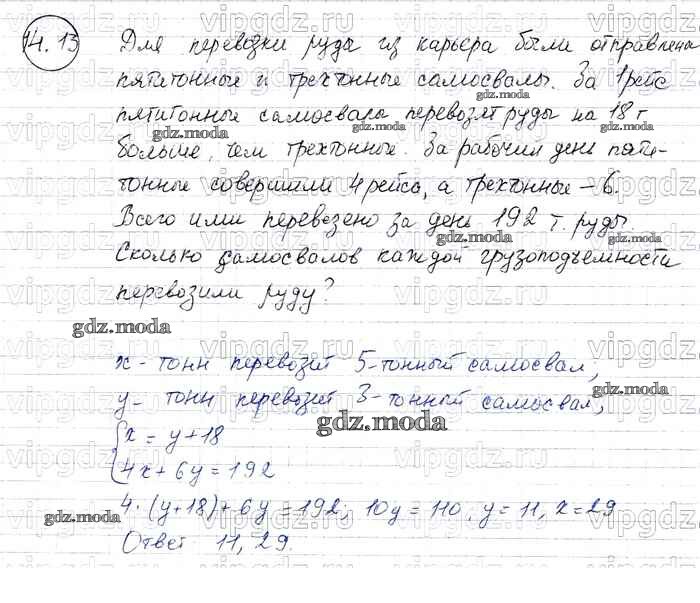 14.13 Для перевозки руды из карьера были отправлены
пятитонные и трехтонные самосвалы. За 1 рейс
пятитонные самосвалы перевозят руды на 18 т
больше, чем трехтонные. За рабочий день пяти-
тонные совершили 4 рейса, а трехтонные – 6.
Всего ими перевезено за день 192 т. руды.
Сколько самосвалов каждой грузоподъемности
перевозили руду?
x - тонн перевозит 5-тонный самосвал,
y - тонн перевозит 3-тонный самосвал,
{x = y + 18
4x + 6y = 192
4·(y+18) + 6y = 192; 10y = 110, y = 11, x = 29
Ответ 11, 29.
vipgdz.ru
gdz.moda